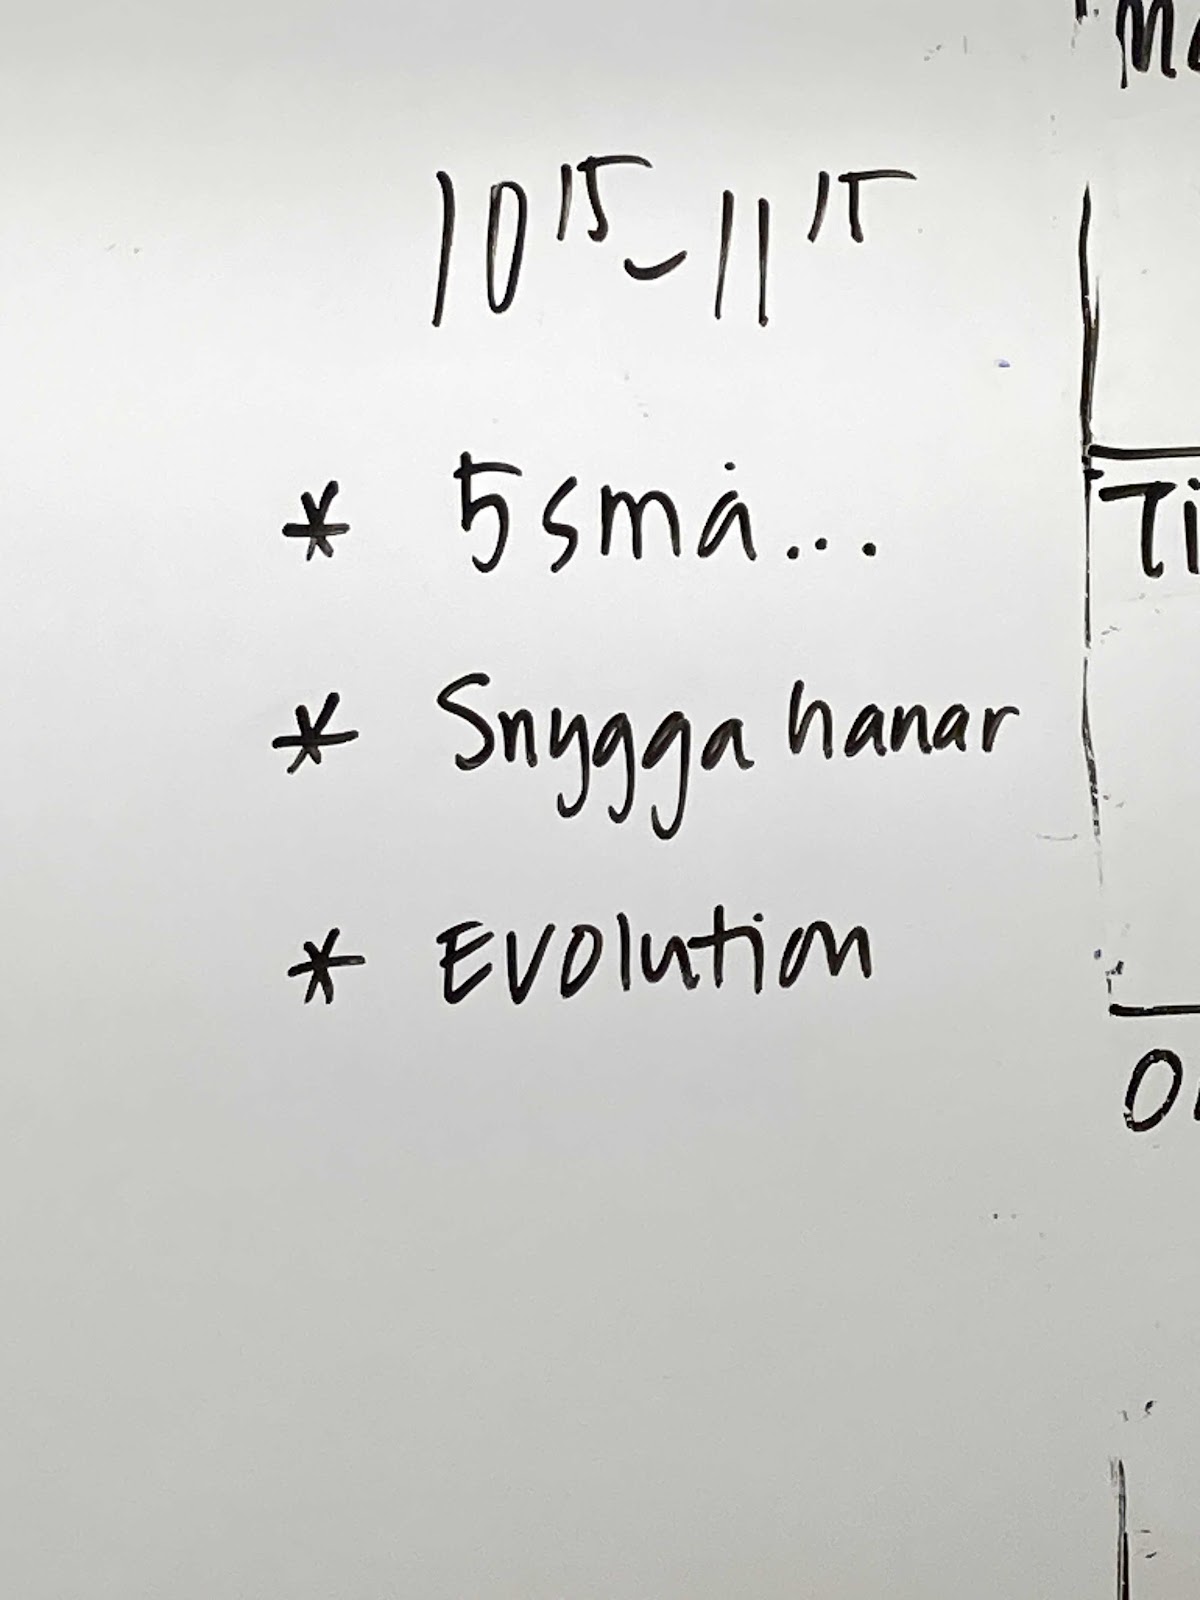 10¹⁵-11¹⁵
* 5 små...
* Snygga hanar
* Evolution